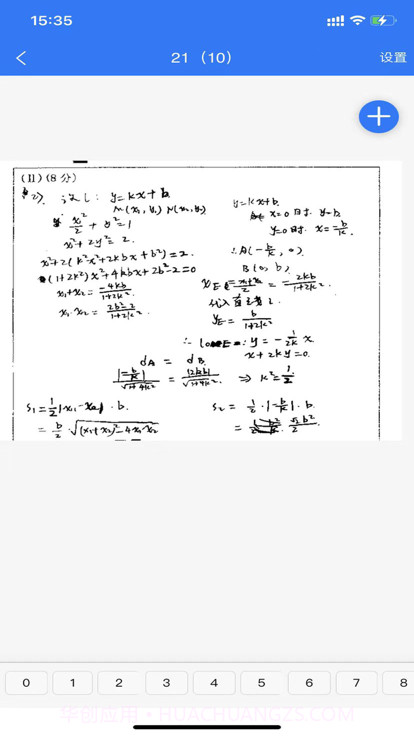 15:35
21 (10)
设置
(11) (8分)
(2). 设l: y=kx+b
M(x₁, y₁) N(x₂, y₂)
x²/2 + y²=1
x²+2y²=2.
x²+2(k²x²+2kbx+b²)=2.
(1+2k²)x²+4kbx+2b²-2=0
x₁+x₂= -4kb/1+2k².
x₁·x₂= 2b²-2/1+2k²
y=kx+b.
x=0时. y=b.
y=0时. x=-b/k.
∴A(-b/k, 0)
B(0, b)
x_E = x₁+x₂/2 = -2kb/1+2k².
代入直线l.
y_E= b/1+2k²
∴ l_OE: y= -1/2k x
x+2ky=0.
d_A = d_B
|-b/k|/√1+4k² = |2kb|/√1+4k² ⇒ k²=1/2
S₁=1/2|x₁-x₂|·b.
= b/2·√(x₁+x₂)²-4x₁x₂
S₂= 1/2·|-b/k|·b
= √2b²/2
0 1 2 3 4 5 6 7 8
华创应用·HUACHUANGZS.COM